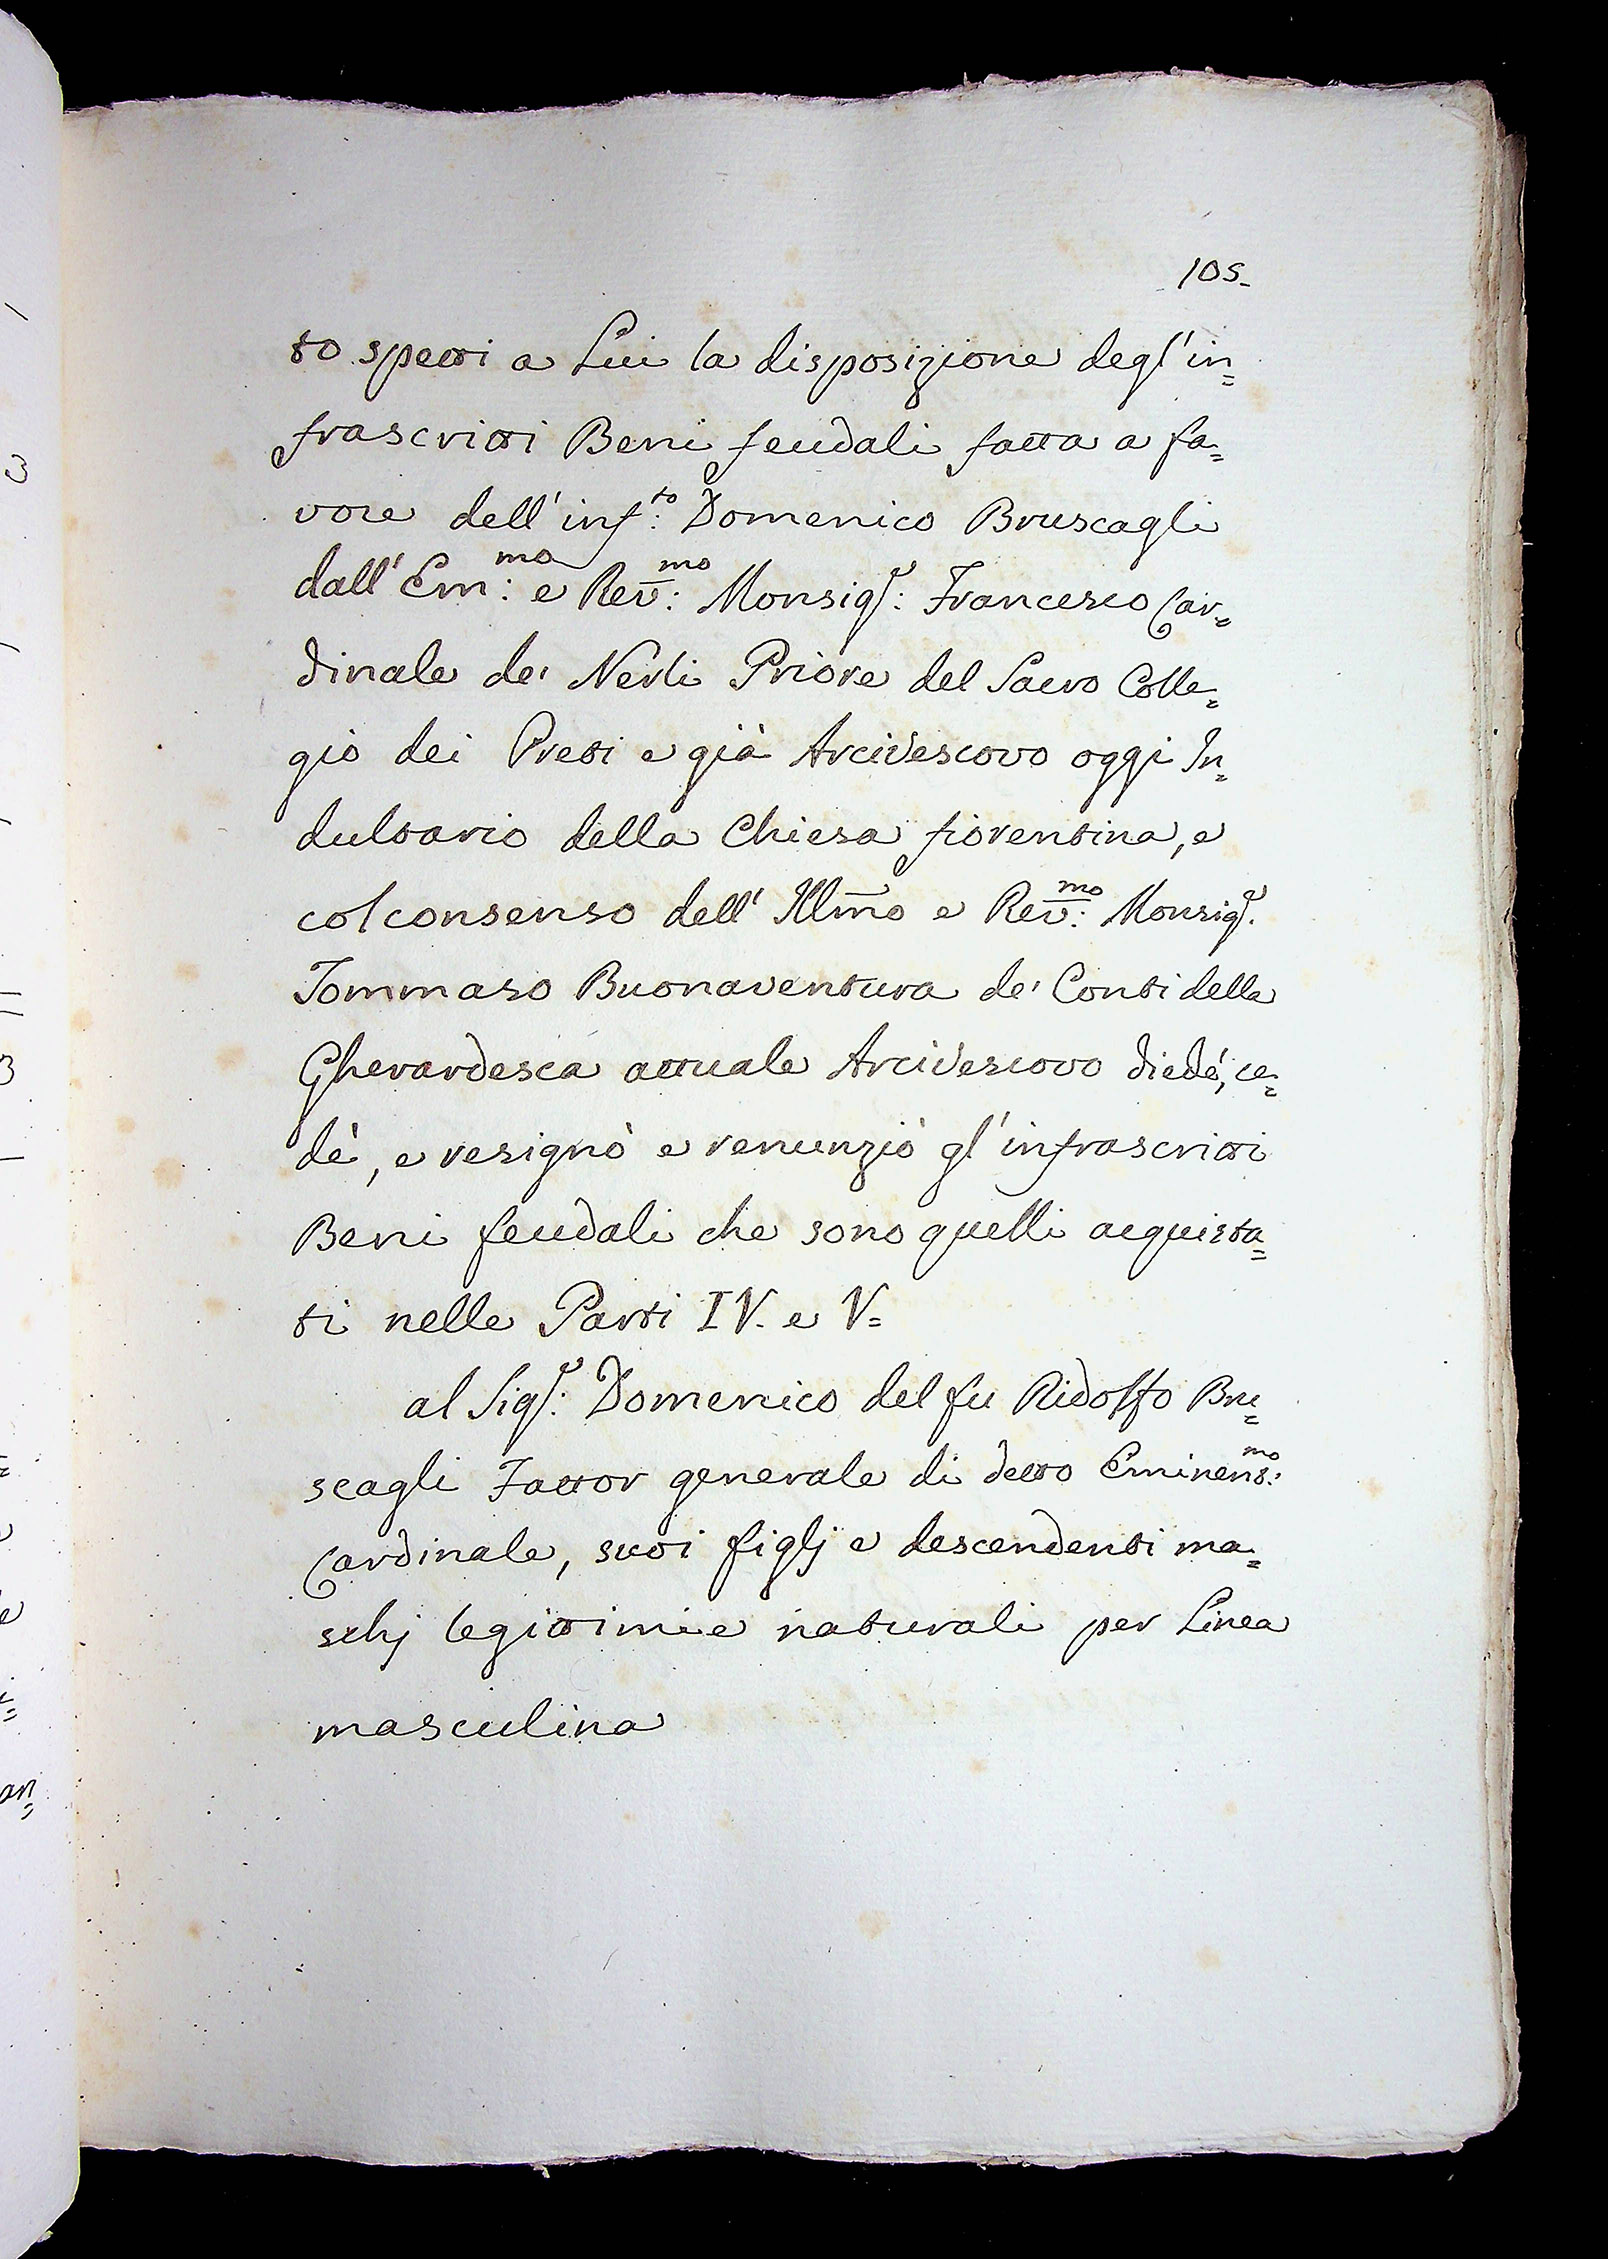 105.
to spetti a Lui la disposizione degl'in=
frascritti Beni feudali fatta a fa=
vore dell'inf:to Domenico Bruscagli
dall'Em:mo e Rev:mo Monsigr: Francesco Car=
dinale de' Nerli Priore del Sacro Colle=
gio dei Preti e già Arcivescovo oggi In=
dultario della Chiesa fiorentina, e
col consenso dell'Illmo e Rev:mo Monsigr.
Tommaso Buonaventura de' Conti della
Gherardesca attuale Arcivescovo diedé, ce=
dè, e resignò e renunziò gl'infrascritti
Beni feudali che sono quelli acquista=
ti nelle Parti IV. e V=
al Sigr: Domenico del fu Ridolfo Bru=
scagli Fattor generale di detto Eminent:mo
Cardinale, suoi figlj e descendenti ma=
schj legittimi e naturali per Linea
masculina